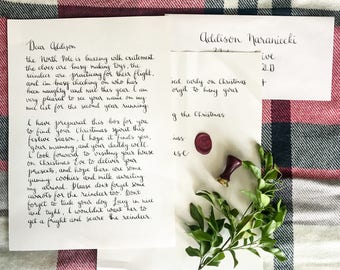 Dear Addison
the North Pole is buzzing with excitement
the elves are busy making toys, the
reindeer are practising for their flight,
and I'm busy checking on who has
been naughty and nice this year. I am
very pleased to see your name on my
nice list for the second year running.
I have prepared this box for you
to find your Christmas spirit this
festive season. I hope it finds you,
your mummy, and your daddy well.
I look forward to visiting your house
on Christmas Eve to deliver your
presents, and hope there are some
yummy cookies and milk awaiting
my arrival. Please don't forget some
carrots for the reindeer too. Don't
forget to tuck your dog in nice
and tight, I wouldn't want her to
get a fright and scare the reindeer.
Addison Naraniecki
early on Christmas
forget to hang your
the Christmas